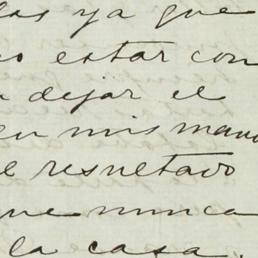 las ya que
o estar con
dejar el
en mis mano
e resultado
ue nunca
la casa.